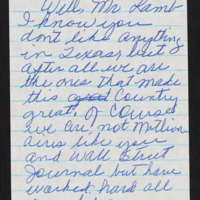 Well, Mr Lamb
I know you
dont like anything
in Texas, but
after all we are
the ones that made
this Country
great, of course
we are not million
aires like you
and Wall Street
Journal but have
worked hard all